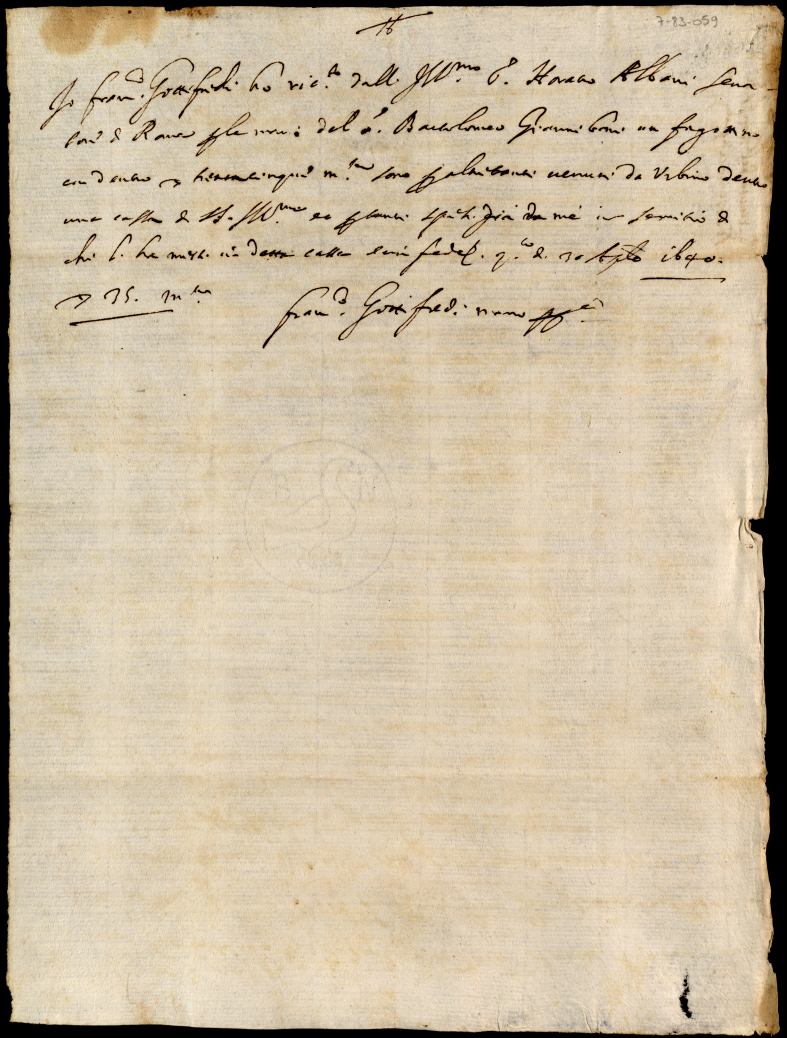 7-83-059
Io Franc.o Gottifredi ho ric.to dall. Ill.mo S. Horatio Albani Sena-
tore di Roma del S. Bartolomeo Gianniboni un fagottino
con dentro trentacinque m.ta sono altretanti venuti da Urbino dentro
una cassa di S. Ill.ma et da me in servitio di
chi l. ha in detta cassa fede q.to di 30 Ag.to 1640.
35. m.ta
Franc.o Gottifredi mano